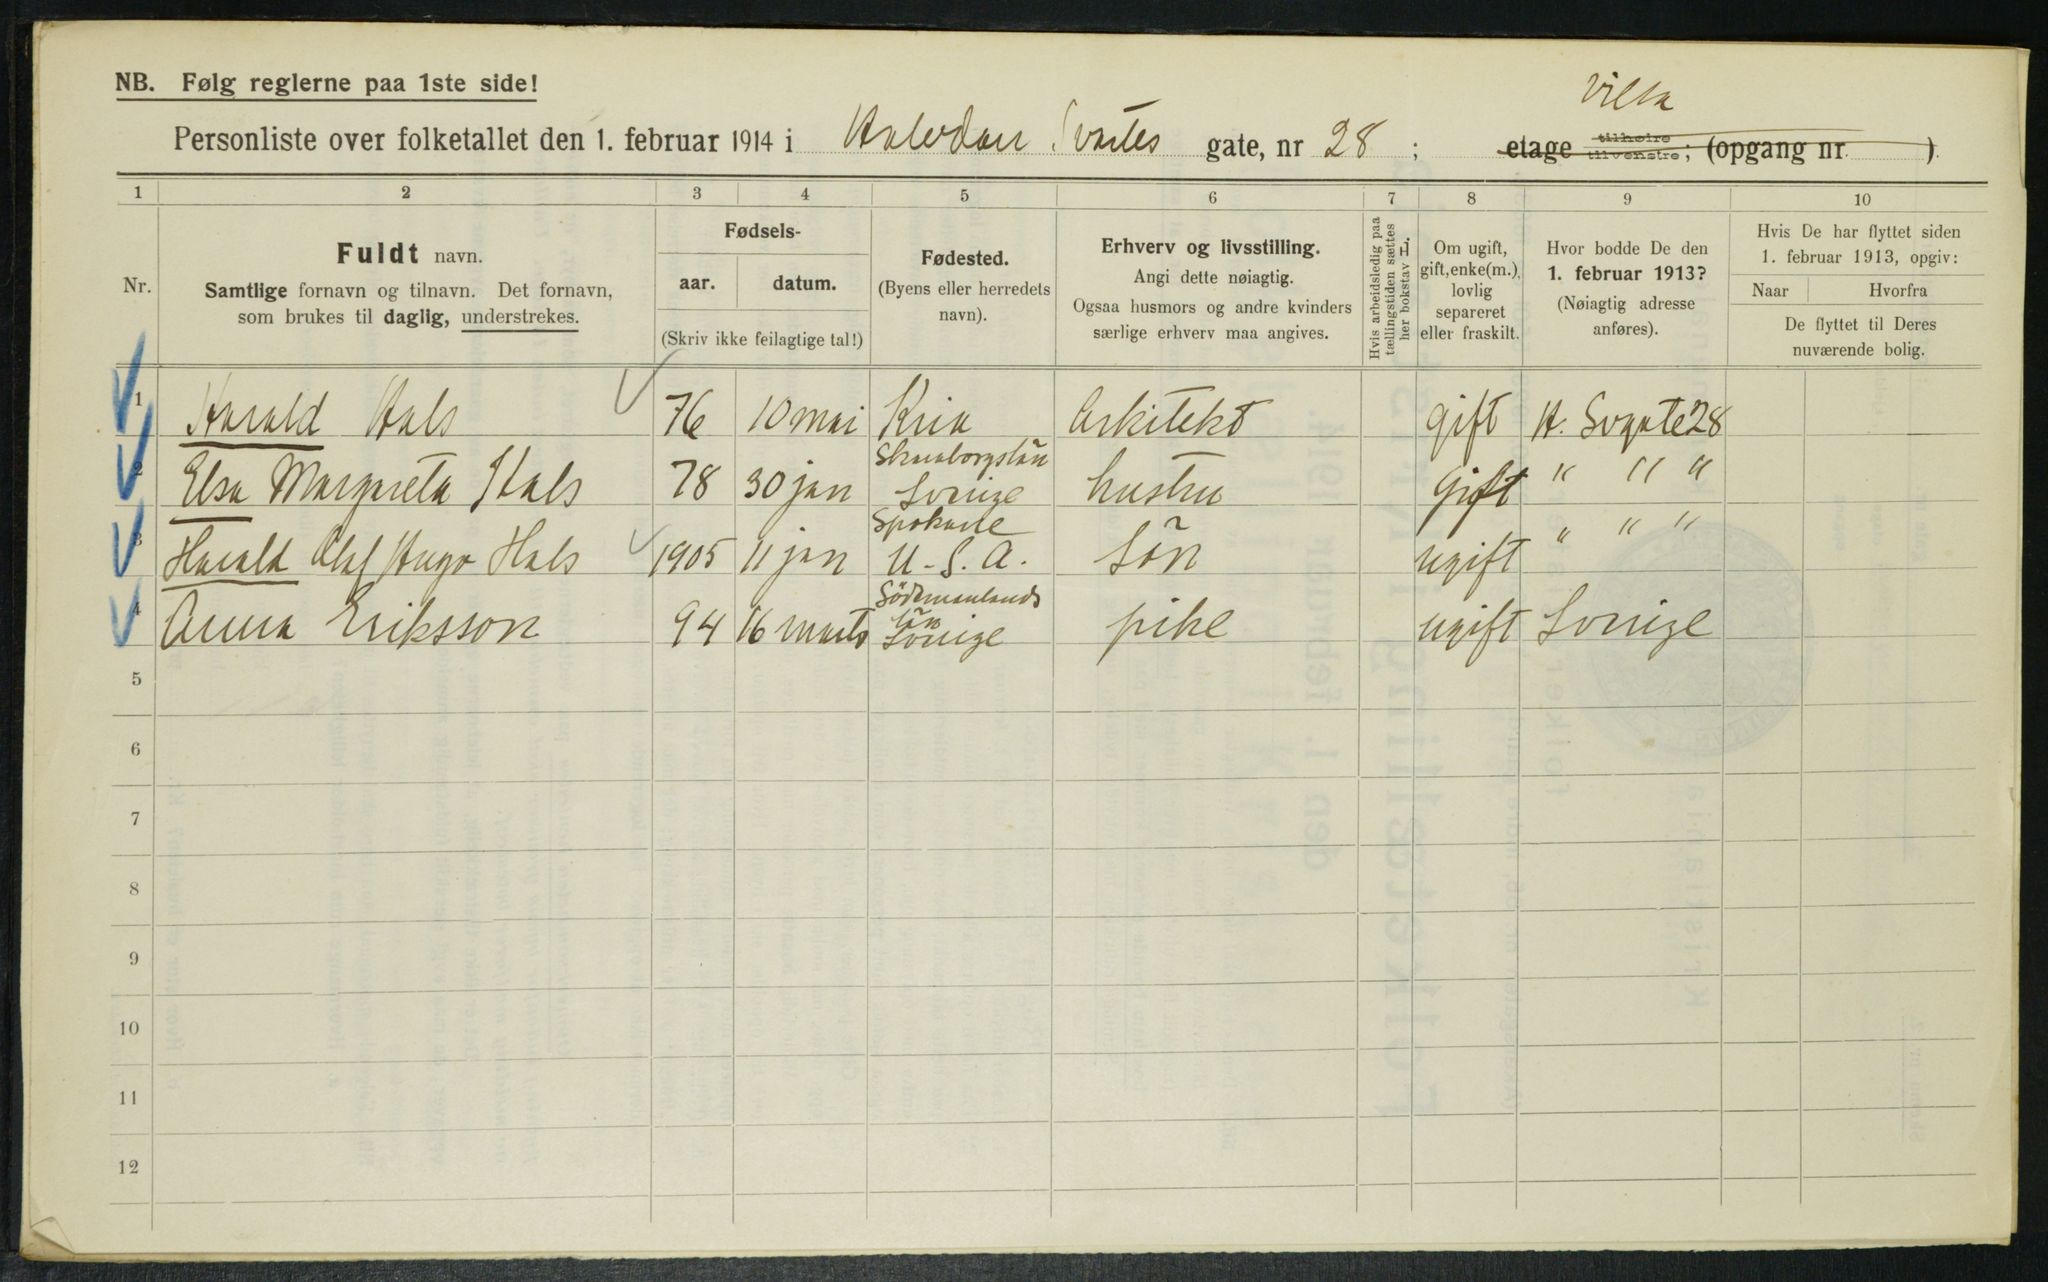 NB. Følg reglerne paa 1ste side!
Villa
Personliste over folketallet den 1. februar 1914 i Halvdan Svartes gate, nr 28 ; etage tilhøire tilvenstre; (opgang nr. )
1 2 3 4 5 6 7 8 9 10
Nr.
Fuldt navn.
Samtlige fornavn og tilnavn. Det fornavn,
som brukes til daglig, understrekes.
Fødsels-
aar. datum.
(Skriv ikke feilagtige tal!)
Fødested.
(Byens eller herredets
navn).
Erhverv og livsstilling.
Angi dette nøiagtig.
Ogsaa husmors og andre kvinders
særlige erhverv maa angives.
Hvis arbeidsledig paa
tællingstiden sættes
her bokstav L.
Om ugift,
gift, enke(m.),
lovlig
separeret
eller fraskilt.
Hvor bodde De den
1. februar 1913?
(Nøiagtig adresse
anføres).
Hvis De har flyttet siden
1. februar 1913, opgiv:
Naar Hvorfra
De flyttet til Deres
nuværende bolig.
1 Harald Hals 76 10 mai Kria Arkitekt gift H. Svgate 28
2 Elsa Margareta Hals 78 30 jan Skaraborgslän Sverige hustru gift " " "
3 Harald Olaf Hugo Hals 1905 11 jan Spokane U.S.A. Sön ugift " " "
4 Anna Eriksson 94 16 marts Södermanlands län Sverige pike ugift Sverige
5
6
7
8
9
10
11
12